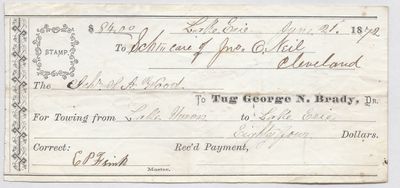 $ 84.00 Lake Erie June 21st 1872
STAMP.
To Schr in care of Jno. O. Neil
Cleveland
The Schr S. A. Wood
To Tug George N. Brady, Dr.
For Towing from Lake Huron to Lake Erie
Eighty four Dollars.
Correct: Rec'd Payment,
Master.